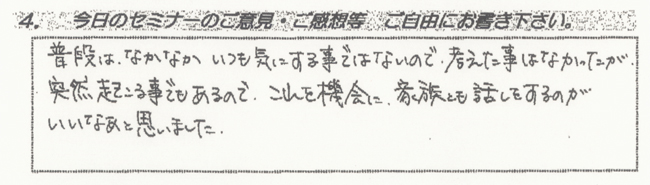 4. 今日のセミナーのご意見・ご感想等 ご自由にお書き下さい。
普段は、なかなか いつも気にする事ではないので、考えた事はなかったが、
突然起こる事でもあるので、これを機会に、家族とも話しをするのが
いいなあと思いました。